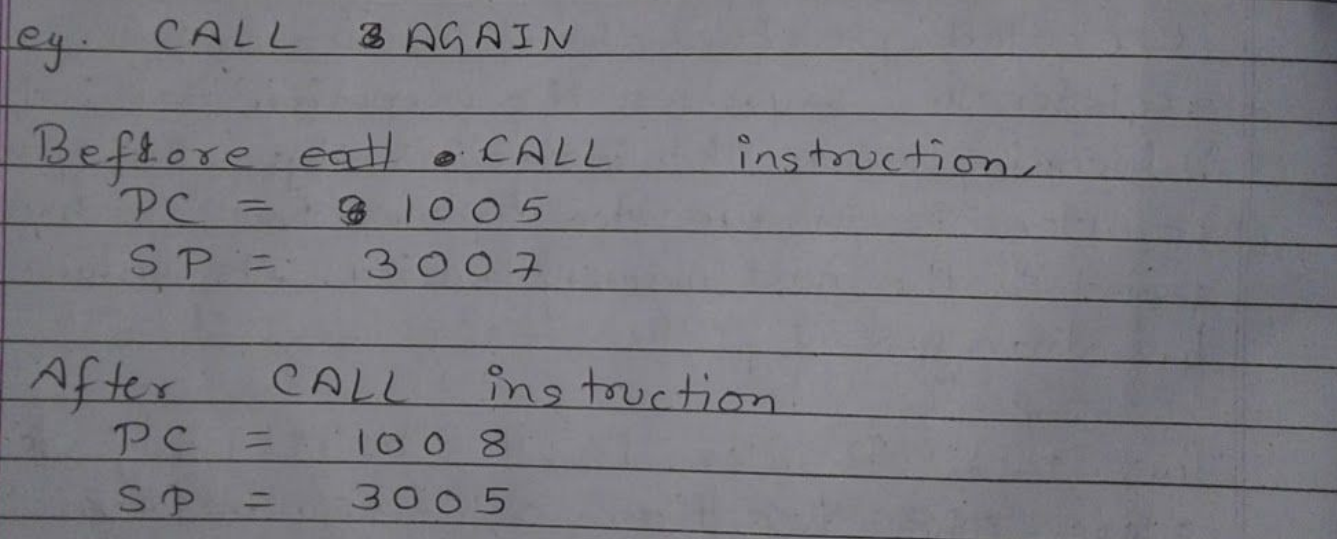 eg. CALL AGAIN
Before CALL instruction,
PC = 1005
SP = 3007
After CALL instruction
PC = 1008
SP = 3005